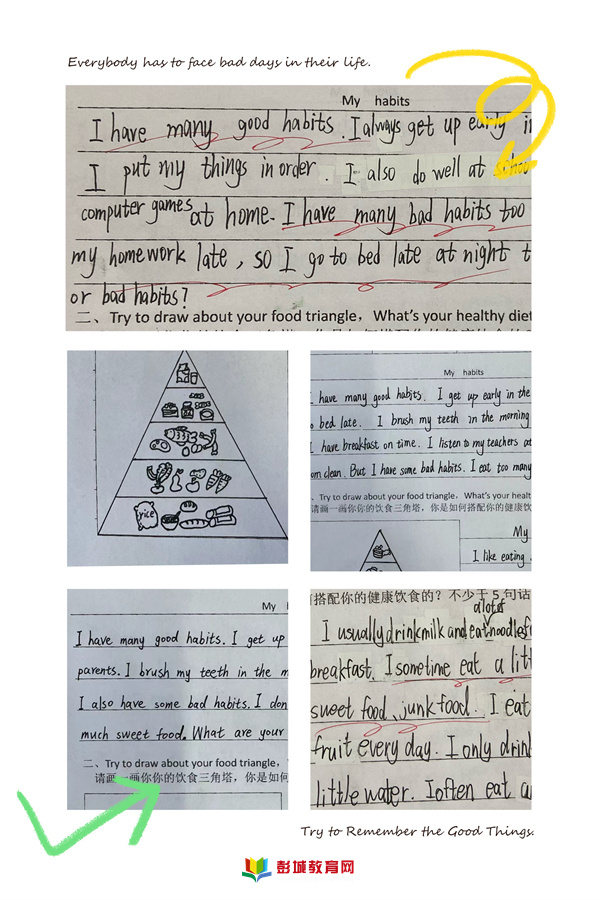 Everybody has to face bad days in their life.
My habits
I have many good habits. I always get up early i
I put my things in order. I also do well at schoo
computer games at home. I have many bad habits too
my homework late, so I go to bed late at night t
or bad habits?
二、Try to draw about your food triangle，What's your healthy diet
rice
My habits
have many good habits. I get up early in the
o bed late. I brush my teeth in the morning
I have breakfast on time. I listen to my teachers at
om clean. But I have some bad habits. I eat too many
、Try to draw about your food triangle，What's your healt
请画一画你你的饮食三角塔，你是如何搭配你的健康饮
My
I like eating
My h
I have many good habits. I get up
parents. I brush my teeth in the m
I also have some bad habits. I don
much sweet food. What are your
二、Try to draw about your food triangle，
请画一画你你的饮食三角塔，你是如何
搭配你的健康饮食的？不少于 5 句话
a lot of
I usually drink milk and eat noodles f
breakfast. I sometime eat a litt
sweet food、junk food. I eat
fruit every day. I only drin
little water. I often eat a
Try to Remember the Good Things.
彭城教育网